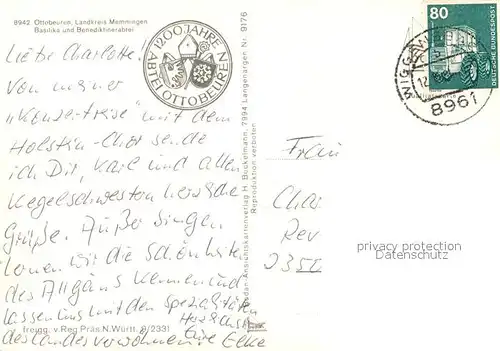 8942 Ottobeuren, Landkreis Memmingen
Basilika und Benediktinerabtei
1200 JAHRE
ABTEI OTTOBEUREN
Liebe Charlotte.
Von meiner
"Konzertreise" mit dem
Holstein-Chor sende
ich Dir, Karl und allen
Kegelschwestern herzliche
Grüße. Außer Singen
lernen wir die Schönheiten
des Allgäus kennen und
lassen uns mit den Spezialitäten
des Landes verwöhnen
Herzlichst
Eure Elke
freigg. v. Reg. Präs. N. Württ. 8/2331
Ansichtskartenverlag H. Bockelmann, 7994 Langenargen Nr. 9176
Reproduktion verboten
80
DEUTSCHE BUNDESPOST
8961
Frau
Char
Rev
2350
privacy protection